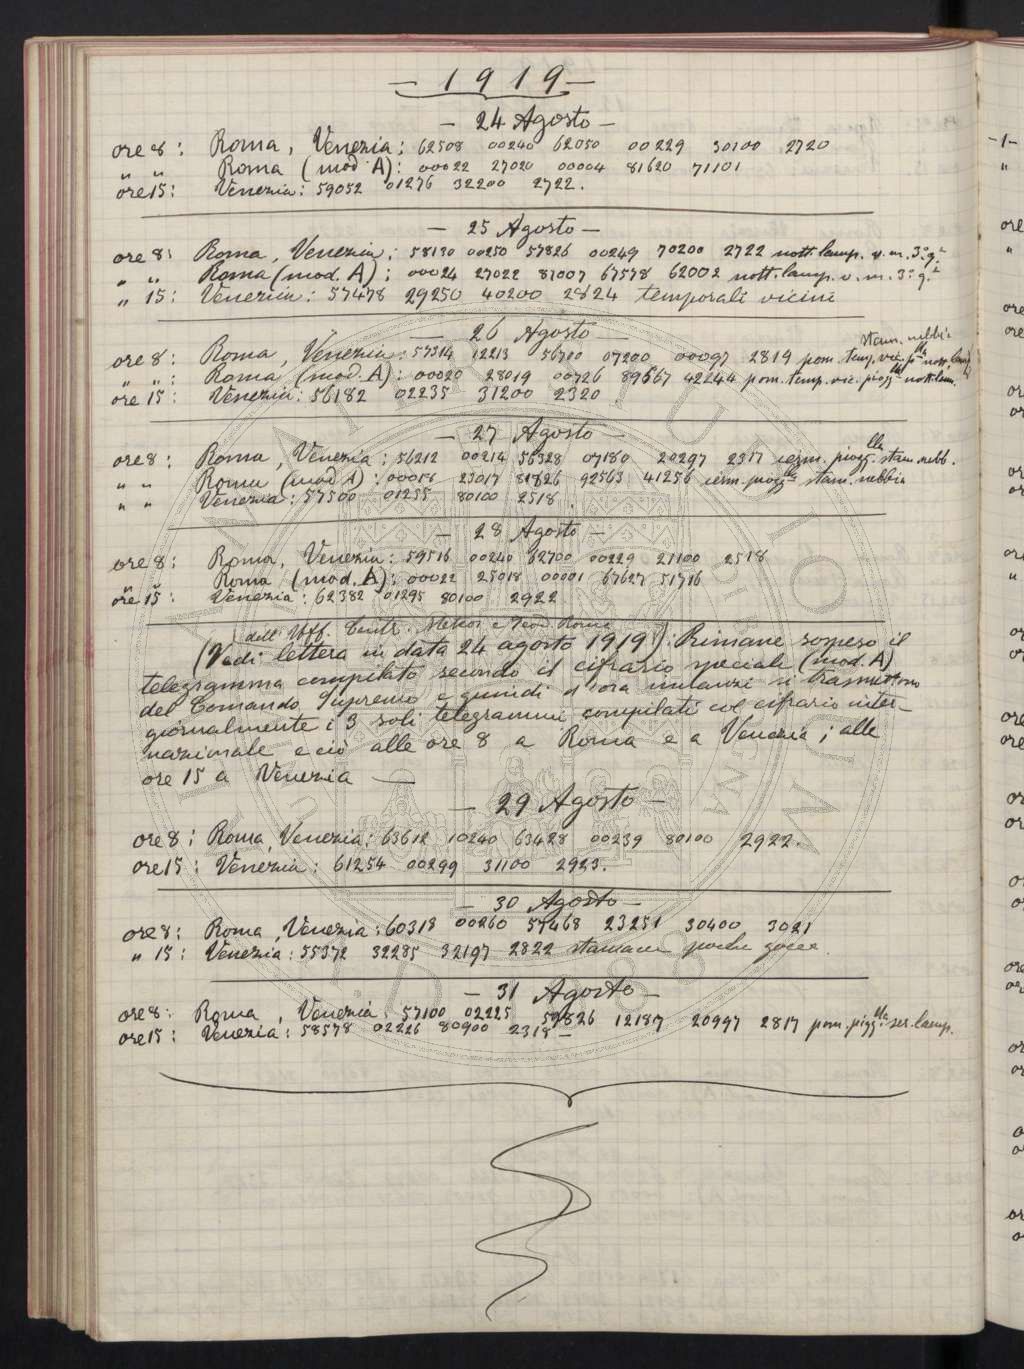 - 1919 -
- 24 Agosto -
ore 8: Roma, Venezia: 62508 00240 62050 00229 30100 2720
" " Roma (mod. A): 00022 27020 00004 81620 71101
ore 15: Venezia: 59052 01276 32200 2722.
- 25 Agosto -
ore 8: Roma, Venezia: 58130 00250 57826 00249 70200 2722 nott. lamp. v. m. 3° q.te
" " Roma (mod. A): 00024 27022 81007 67578 62002 nott. lamp. v. m. 3° q.te
" 15: Venezia: 57478 29250 40200 2824 temporali vicini
- 26 Agosto -
stam. nebbia
ore 8: Roma, Venezia: 57314 12213 56700 07200 00097 2819 pom. temp. vic. nott. lamp.
" " : Roma (mod. A): 00020 28019 00726 89667 42244 pom. temp. vic. piogg.lla nott. lam.
ore 15: Venezia: 56182 02235 31200 2320
- 27 Agosto -
ore 8: Roma, Venezia: 56212 00214 56328 07180 20297 2317 ierm. piogg.lla stam. nebb.
" " Roma (mod A): 00018 23017 81826 92563 41256 ierm. piogg.lla stam. nebbia
" " Venezia: 57500 01255 80100 2518
- 28 Agosto -
ore 8: Roma, Venezia: 59516 00240 62700 00229 21100 2518
" " Roma (mod. A): 00022 25018 00001 67627 51716
ore 15: Venezia: 62382 01295 80100 2922
dell' Uff. Centr. Meteor. e Geod. Roma
(Vedi lettera in data 24 agosto 1919). Rimane sospeso il
telegramma compilato secondo il cifrario speciale (mod. A)
del Comando Supremo e quindi d'ora innanzi si trasmettono
giornalmente i 3 soli telegrammi compilati col cifrario inter-
nazionale e ciò alle ore 8 a Roma e a Venezia; alle
ore 15 a Venezia —
- 29 Agosto -
ore 8: Roma, Venezia: 63612 10240 63428 00239 80100 2922.
ore 15: Venezia: 61254 00299 31100 2923.
- 30 Agosto -
ore 8: Roma, Venezia: 60313 00260 57468 23251 30400 3021
" 15: Venezia: 55372 32285 32197 2822 stamane poche gocce
- 31 Agosto -
ore 8: Roma, Venezia: 57100 02225 59826 12187 20997 2817 pom. piogg.lla ser. lamp.
ore 15: Venezia: 58578 02226 80900 2318 -